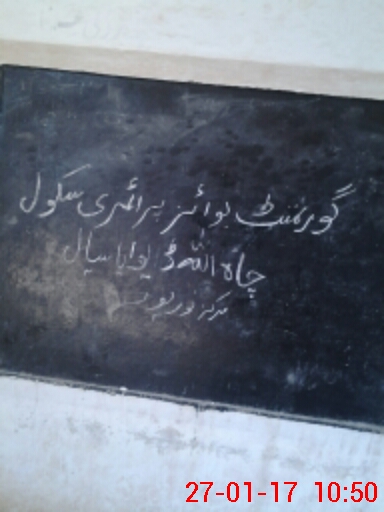 گورنمنٹ بوائز پرائمری سکول
چاہ اللہ ڈیوایا سیال
مرکز نورپور
27-01-17 10:50